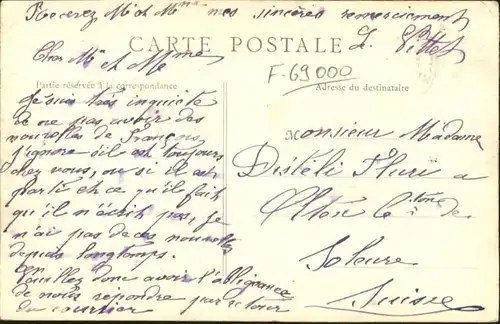 Recevez M. et Mme mes sincères remerciement
CARTE POSTALE
Cher Mr et Mme
F-69000
Partie réservée à la correspondance
Adresse du destinataire
Je suis très inquiète
de ne pas avoir des
nouvelles de François,
j'ignore s'il est toujours
chez vous, ou si il est
parti et ce qu'il fait
qu'il n'écrit pas, Je
n'ai pas de ces nouvelles
depuis longtemps.
Veuillez donc avoir l'obligeance
de nous répondre par retour
du courrier
Monsieur Madame
Distéli Fluri a
Olten Ctone de
Soleure
Suisse